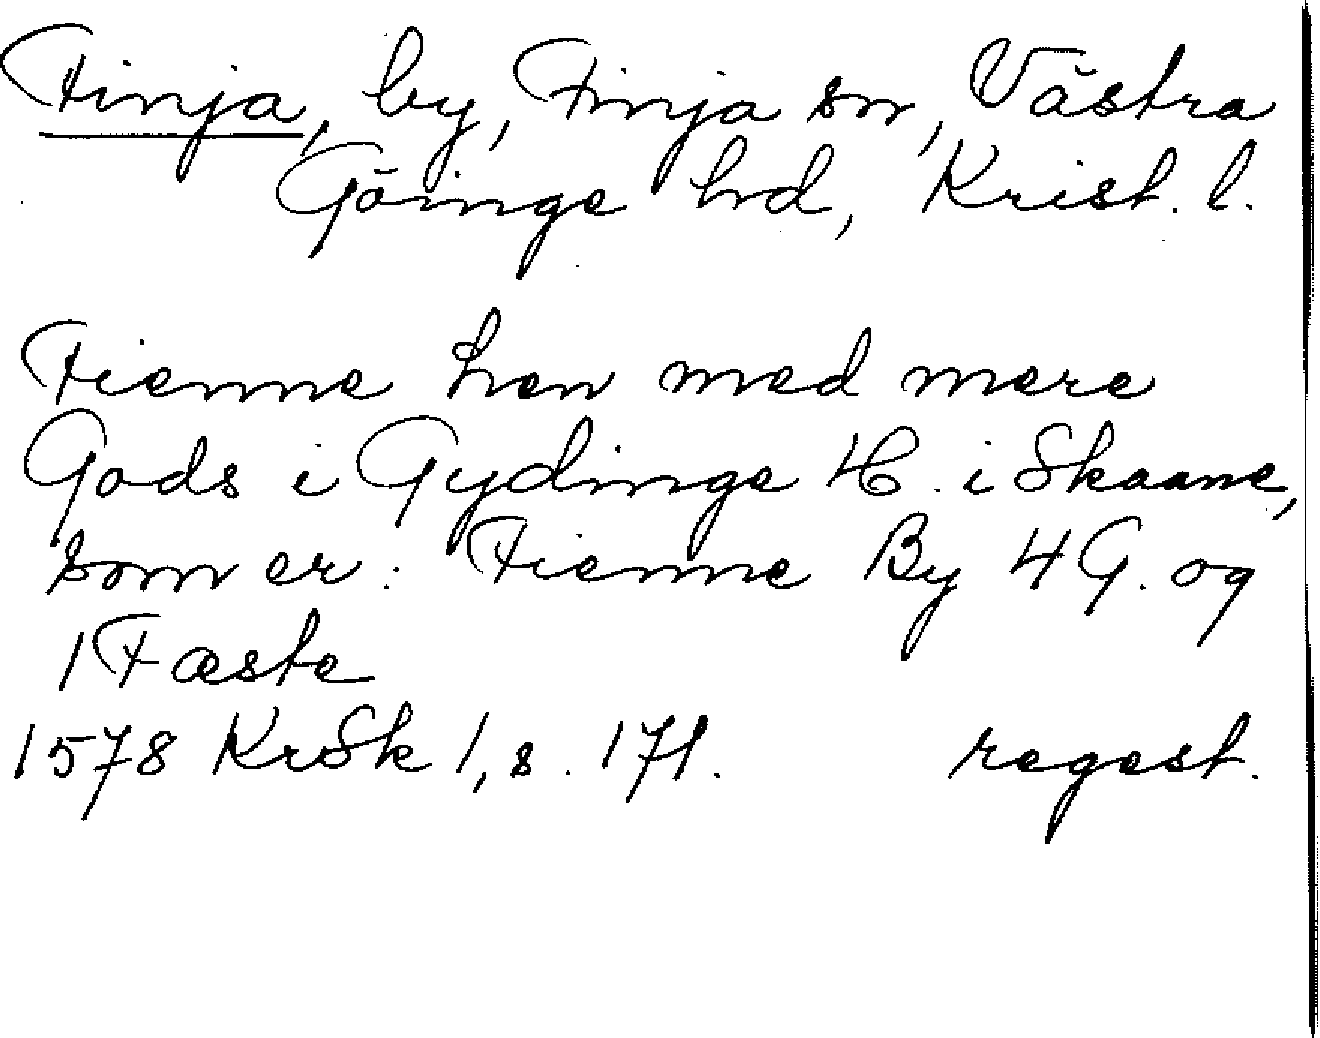 Finja, by, Finja sn, Västra
Göinge hrd, Krist. l.
Fienne hen med mere
Gods i Gydinge H. i Skaane,
som er: Fienne By 4 G. og
1 Fæste
1578 KrSk 1, s. 171. regest.